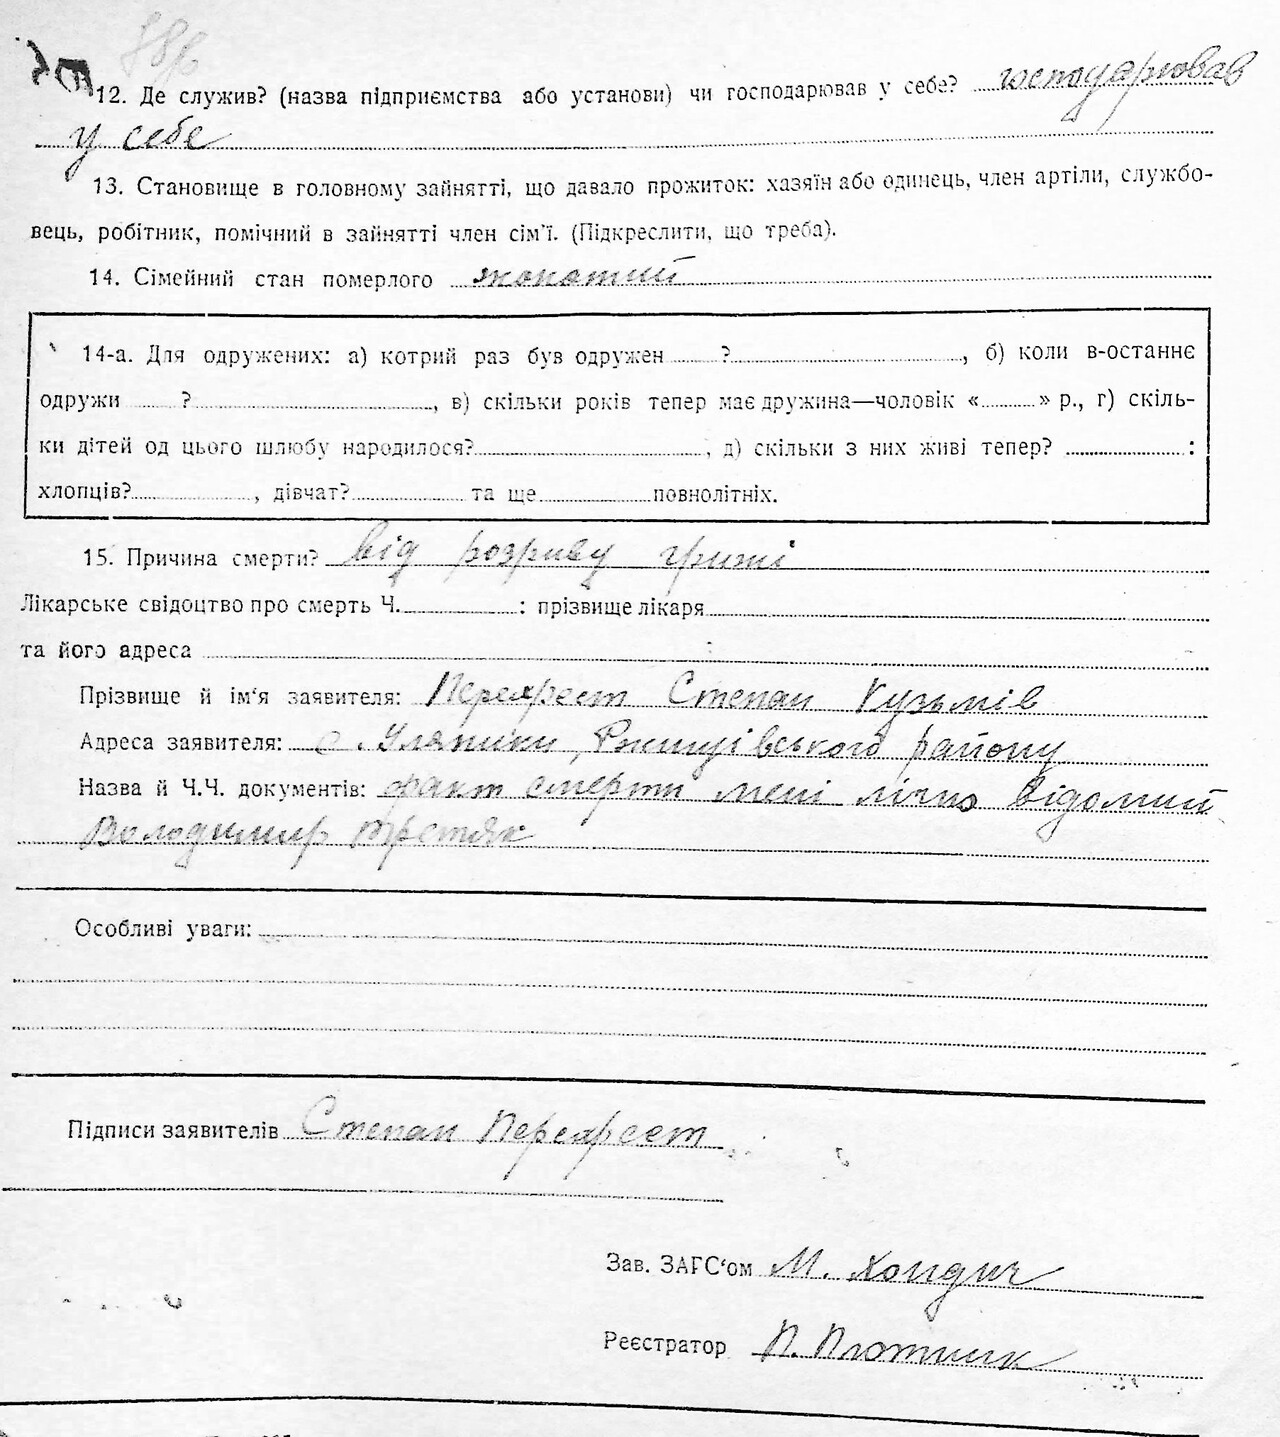 12. Де служив? (назва підприємства або установи) чи господарював у себе? господарював
у себе
13. Становище в головному зайнятті, що давало прожиток: хазяїн або одинець, член артіли, службо-
вець, робітник, помічний в зайнятті член сім'ї. (Підкреслити, що треба).
14. Сімейний стан померлого жонатий
14-а. Для одружених: а) котрий раз був одружен ?, б) коли в-останнє
одружи ?, в) скільки років тепер має дружина—чоловік « » р., г) скіль-
ки дітей од цього шлюбу народилося? , д) скільки з них живі тепер? :
хлопців? , дівчат? та ще повнолітніх.
15. Причина смерти? від розриву грижі
Лікарське свідоцтво про смерть Ч. : прізвище лікаря
та його адреса
Прізвище й ім'я заявителя: Перехрест Степан Кузьмів
Адреса заявителя: с. Уляники, Ржищівського району
Назва й Ч.Ч. документів: факт смерти мені лічно відомий
Володимир Третяк
Особливі уваги:
Підписи заявителів Степан Перехрест
Зав. ЗАГС'ом М.
Реєстратор П. Плотник